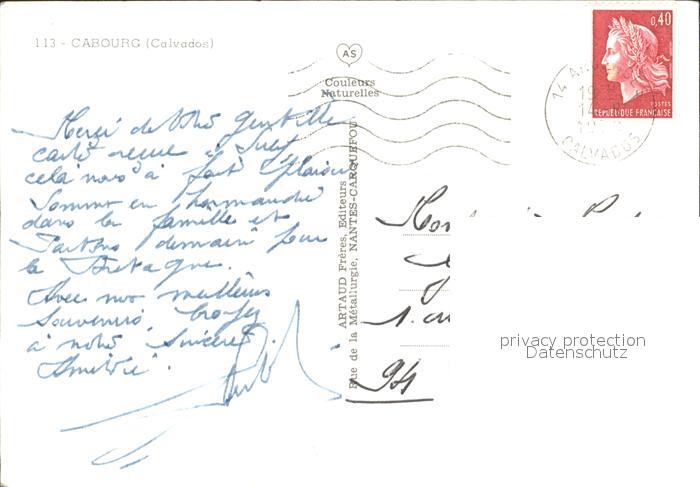 113 - CABOURG (Calvados)
AS
Couleurs
Naturelles
0,40
POSTES
REPUBLIQUE FRANÇAISE
14
CALVADOS
Merci de votre gentille
carte reçue à
cela nous a fait plaisir
Sommes en Normandie
dans la famille et
Partons demain pour
la Bretagne.
Avec nos meilleurs
Souvenirs, Croyez
à notre sincère
Amitié.
ARTAUD Frères, Editeurs
Rue de la Métallurgie, NANTES-CARQUEFOU
94
privacy protection
Datenschutz